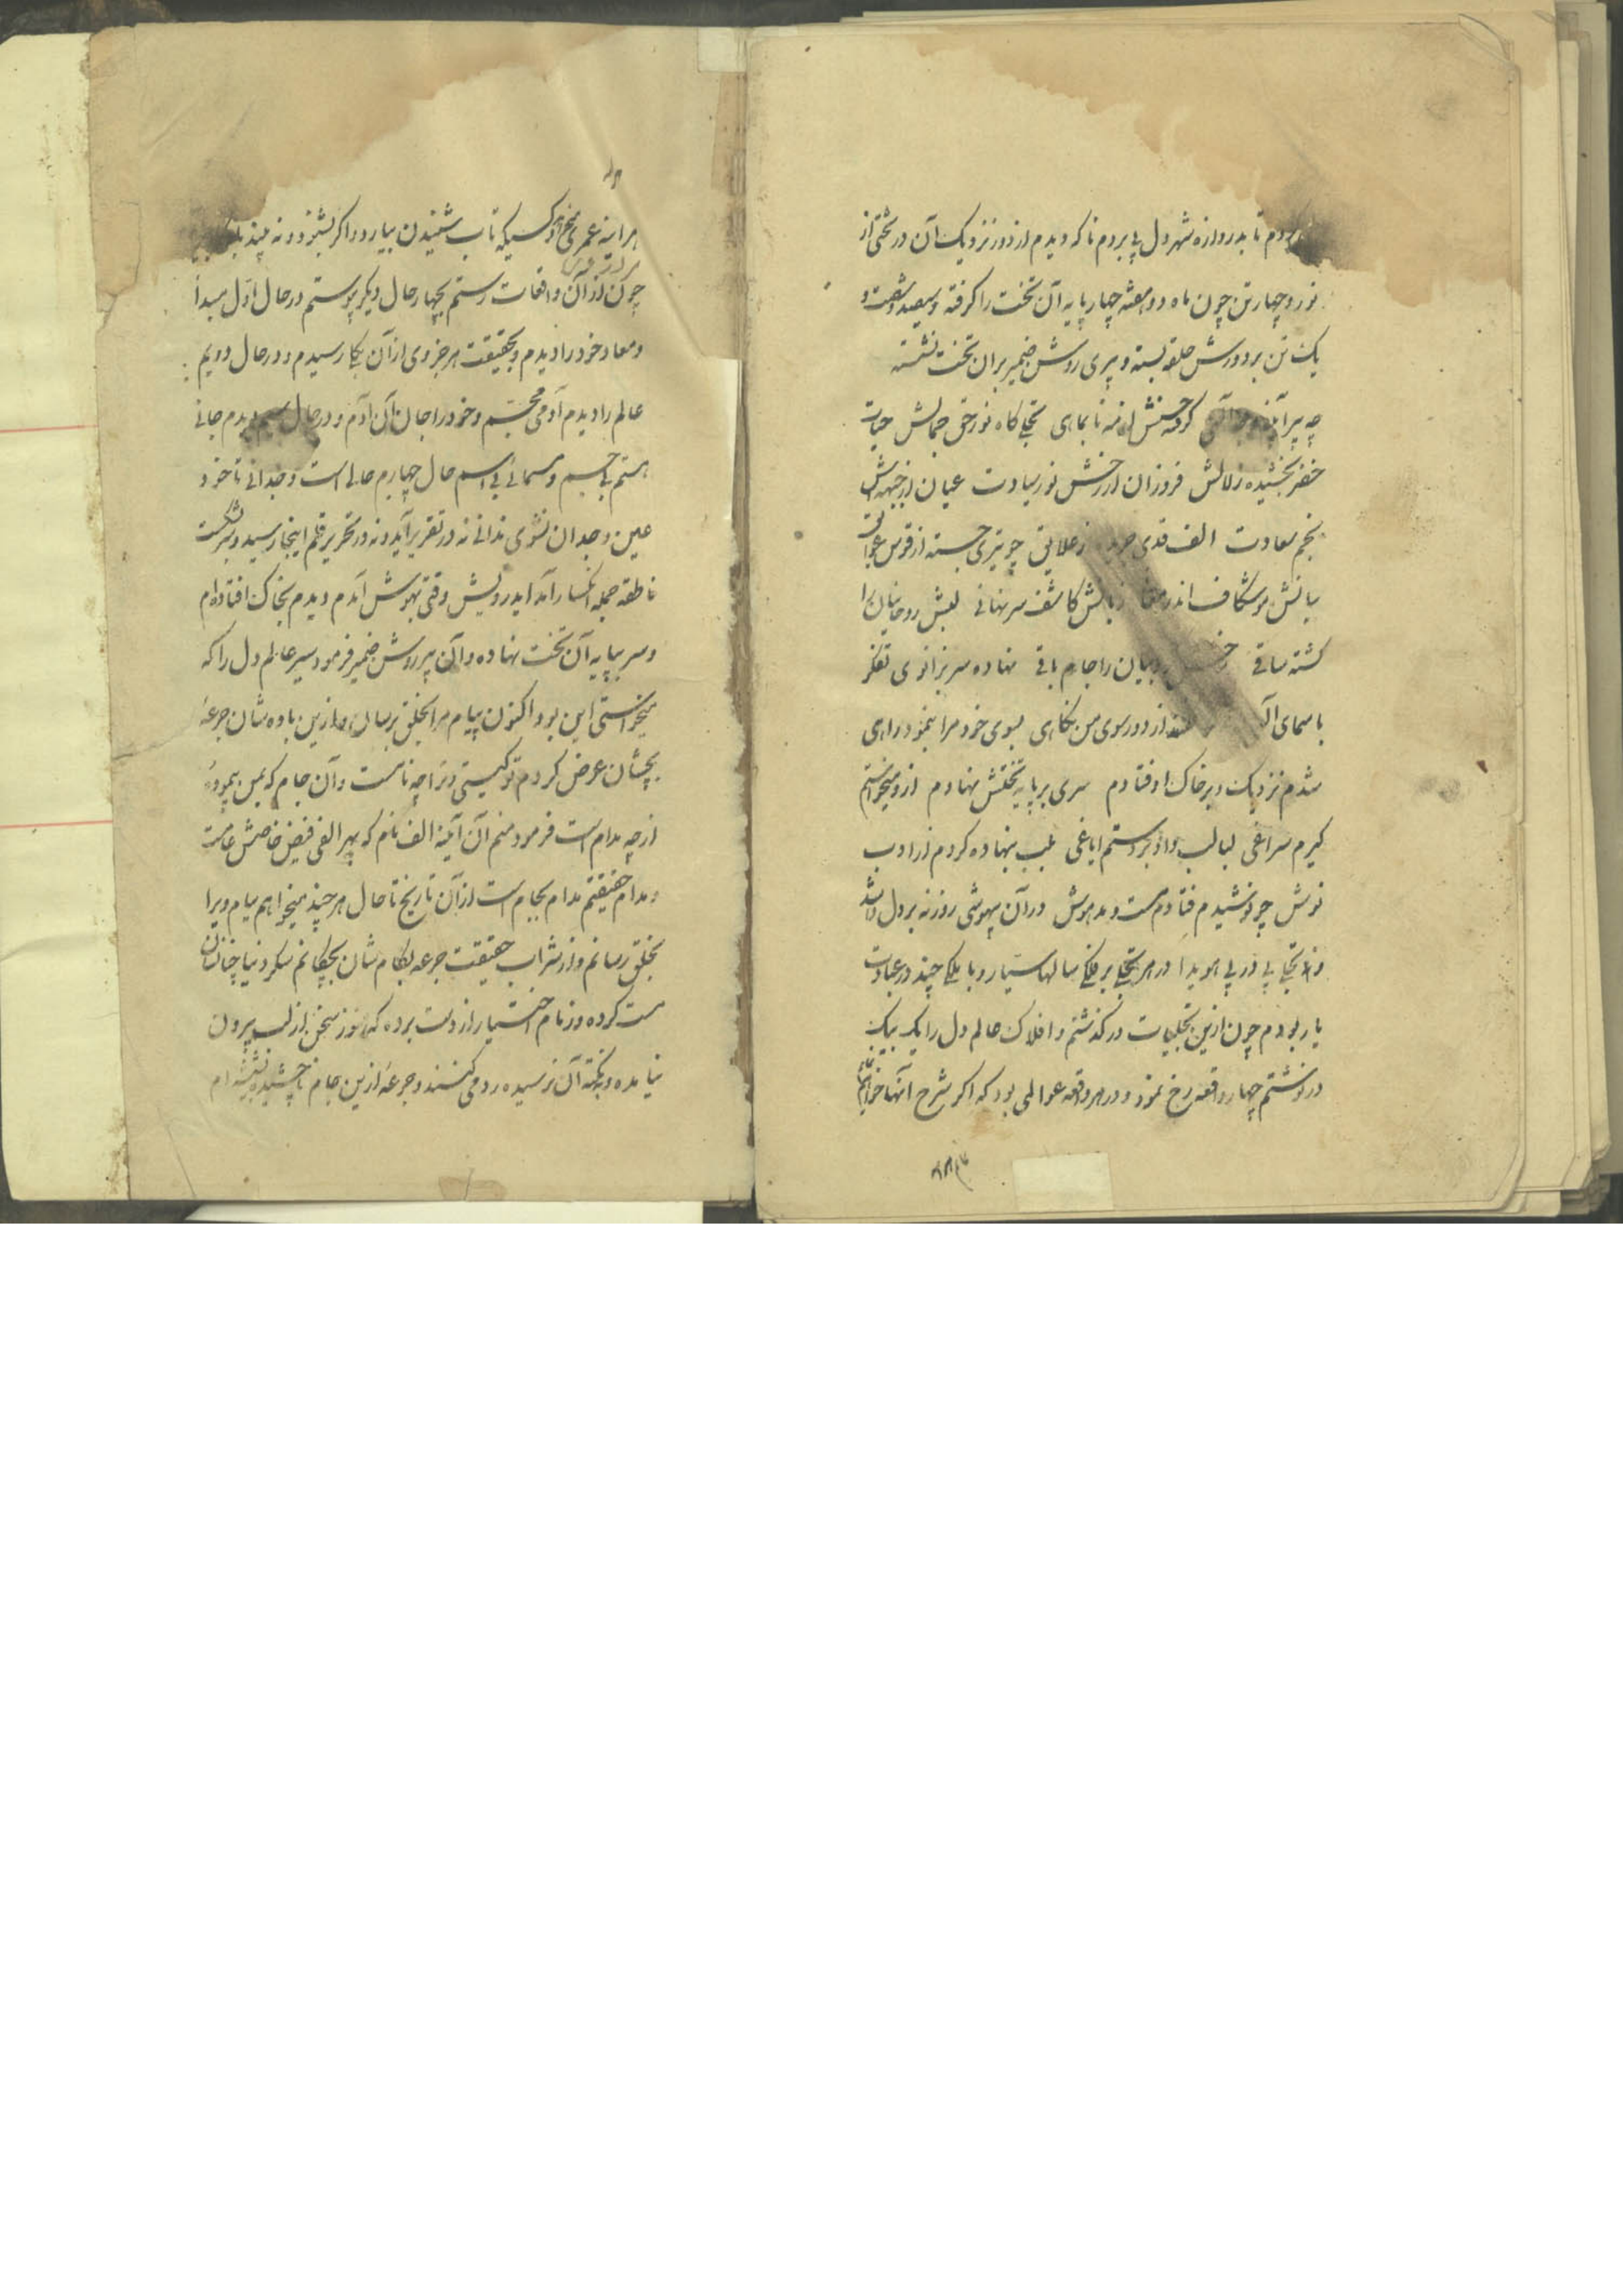 بردم تا بدروازه شهر دل پی بردم ناکه دیدم از دور نزدیک آن در تختی از
نور و چهار تن چون ماه دو هفته چهار پایه آن تخت را کرفته و سیصد و شصت و
یک تن بر دورش حلقه بسته و پیری روشن ضمیر بران تخت نشسته
چه پیر کرفته حسنش از مه تا بماهی تجلی کاه نور حق جمالش حیات
خضر بخشیده زلالش فروزان از رخش نور سیادت عیان از جبهه اش
نجم سعادت الف قدی ز علایق چو تیری جسته از قوس عوایق
بیانش موشکاف اندر زبانش کاشف سر نهانی لبش روحانیان را
کشته ساقی را جام باقی نهاده سر بزانوی تفکر
باسمای از دور سوی من نکاهی بسوی خود مرا بنمود راهی
شدم نزدیک و بر خاک اوفتادم سری بر پایه تختش نهادم ازو میخواستم
کیرم سراغی لبالب داد بر دستم ایاغی بلب بنهاده کردم از ادب
نوش چو نوشیدم فتادم مست و مدهوش در آن بیهوشی روزنه بر دل وا شد
و تجلی پی در پی هویدا در هر تجلی بر فلکی سالها سیار و با ملکی چند در عبادت
یار بودم چون ازین تجلیات درکذشتم و افلاک عالم دل را یک بیک
در نوشتم چهار واقعه رخ نمود و در هر واقعه عوالمی بود که اکر شرح آنها خواهم
هر اینه عمری کسیکه تاب شنیدن بیارد و اکر بشنود نه بیند
چون از آن واقعات رستم بچهار حال دیکر پیوستم در حال اول مبدأ
و معاد خود را دیدم و بحقیقت هر جزوی از آن بکار رسیدم و در حال دویم
عالم را دیدم آدمی مجسم و خود را جان آن آدم و در حال سیم دیدم جانی
هستم بی جسم و مسمائی بی اسم حال چهارم حالی است وجدانی تا خود
عین وجدان نشوی ندانی نه در تقریر آید و نه در تحریر قلم اینجا رسید و سر بشکست
ناطقه جمله انکسار آمد ایدرویش وقتی بهوش آمدم دیدم بخاک افتاده ام
و سر بپایه آن تخت نهاده و آن پیر روشن ضمیر فرمود سیر عالم دل را که
میخواستی این بود اکنون پیام مرا بخلق برسان و ازین باده شان جرعه
بچشان عرض کردم تو کیستی و ترا چه نامست و آن جام که بمن پیمودی
از چه مدام است فرمود منم آن آینه الف نام که بهر الفی فیض خاصش عامست
و مدام حقیقتم مدام بجام است از آن تاریخ تا حال هر چند میخواهم پیام ویرا
بخلق رسانم و از شراب حقیقت جرعه بکام شان بچکانم سکر دنیا چنانشان
مست کرده و زمام اختیار از دست برده که هنوز سخن از لب بیرون
نیامده و بنکته آن نرسیده رد می کنند و جرعه ازین جام ناچشیده